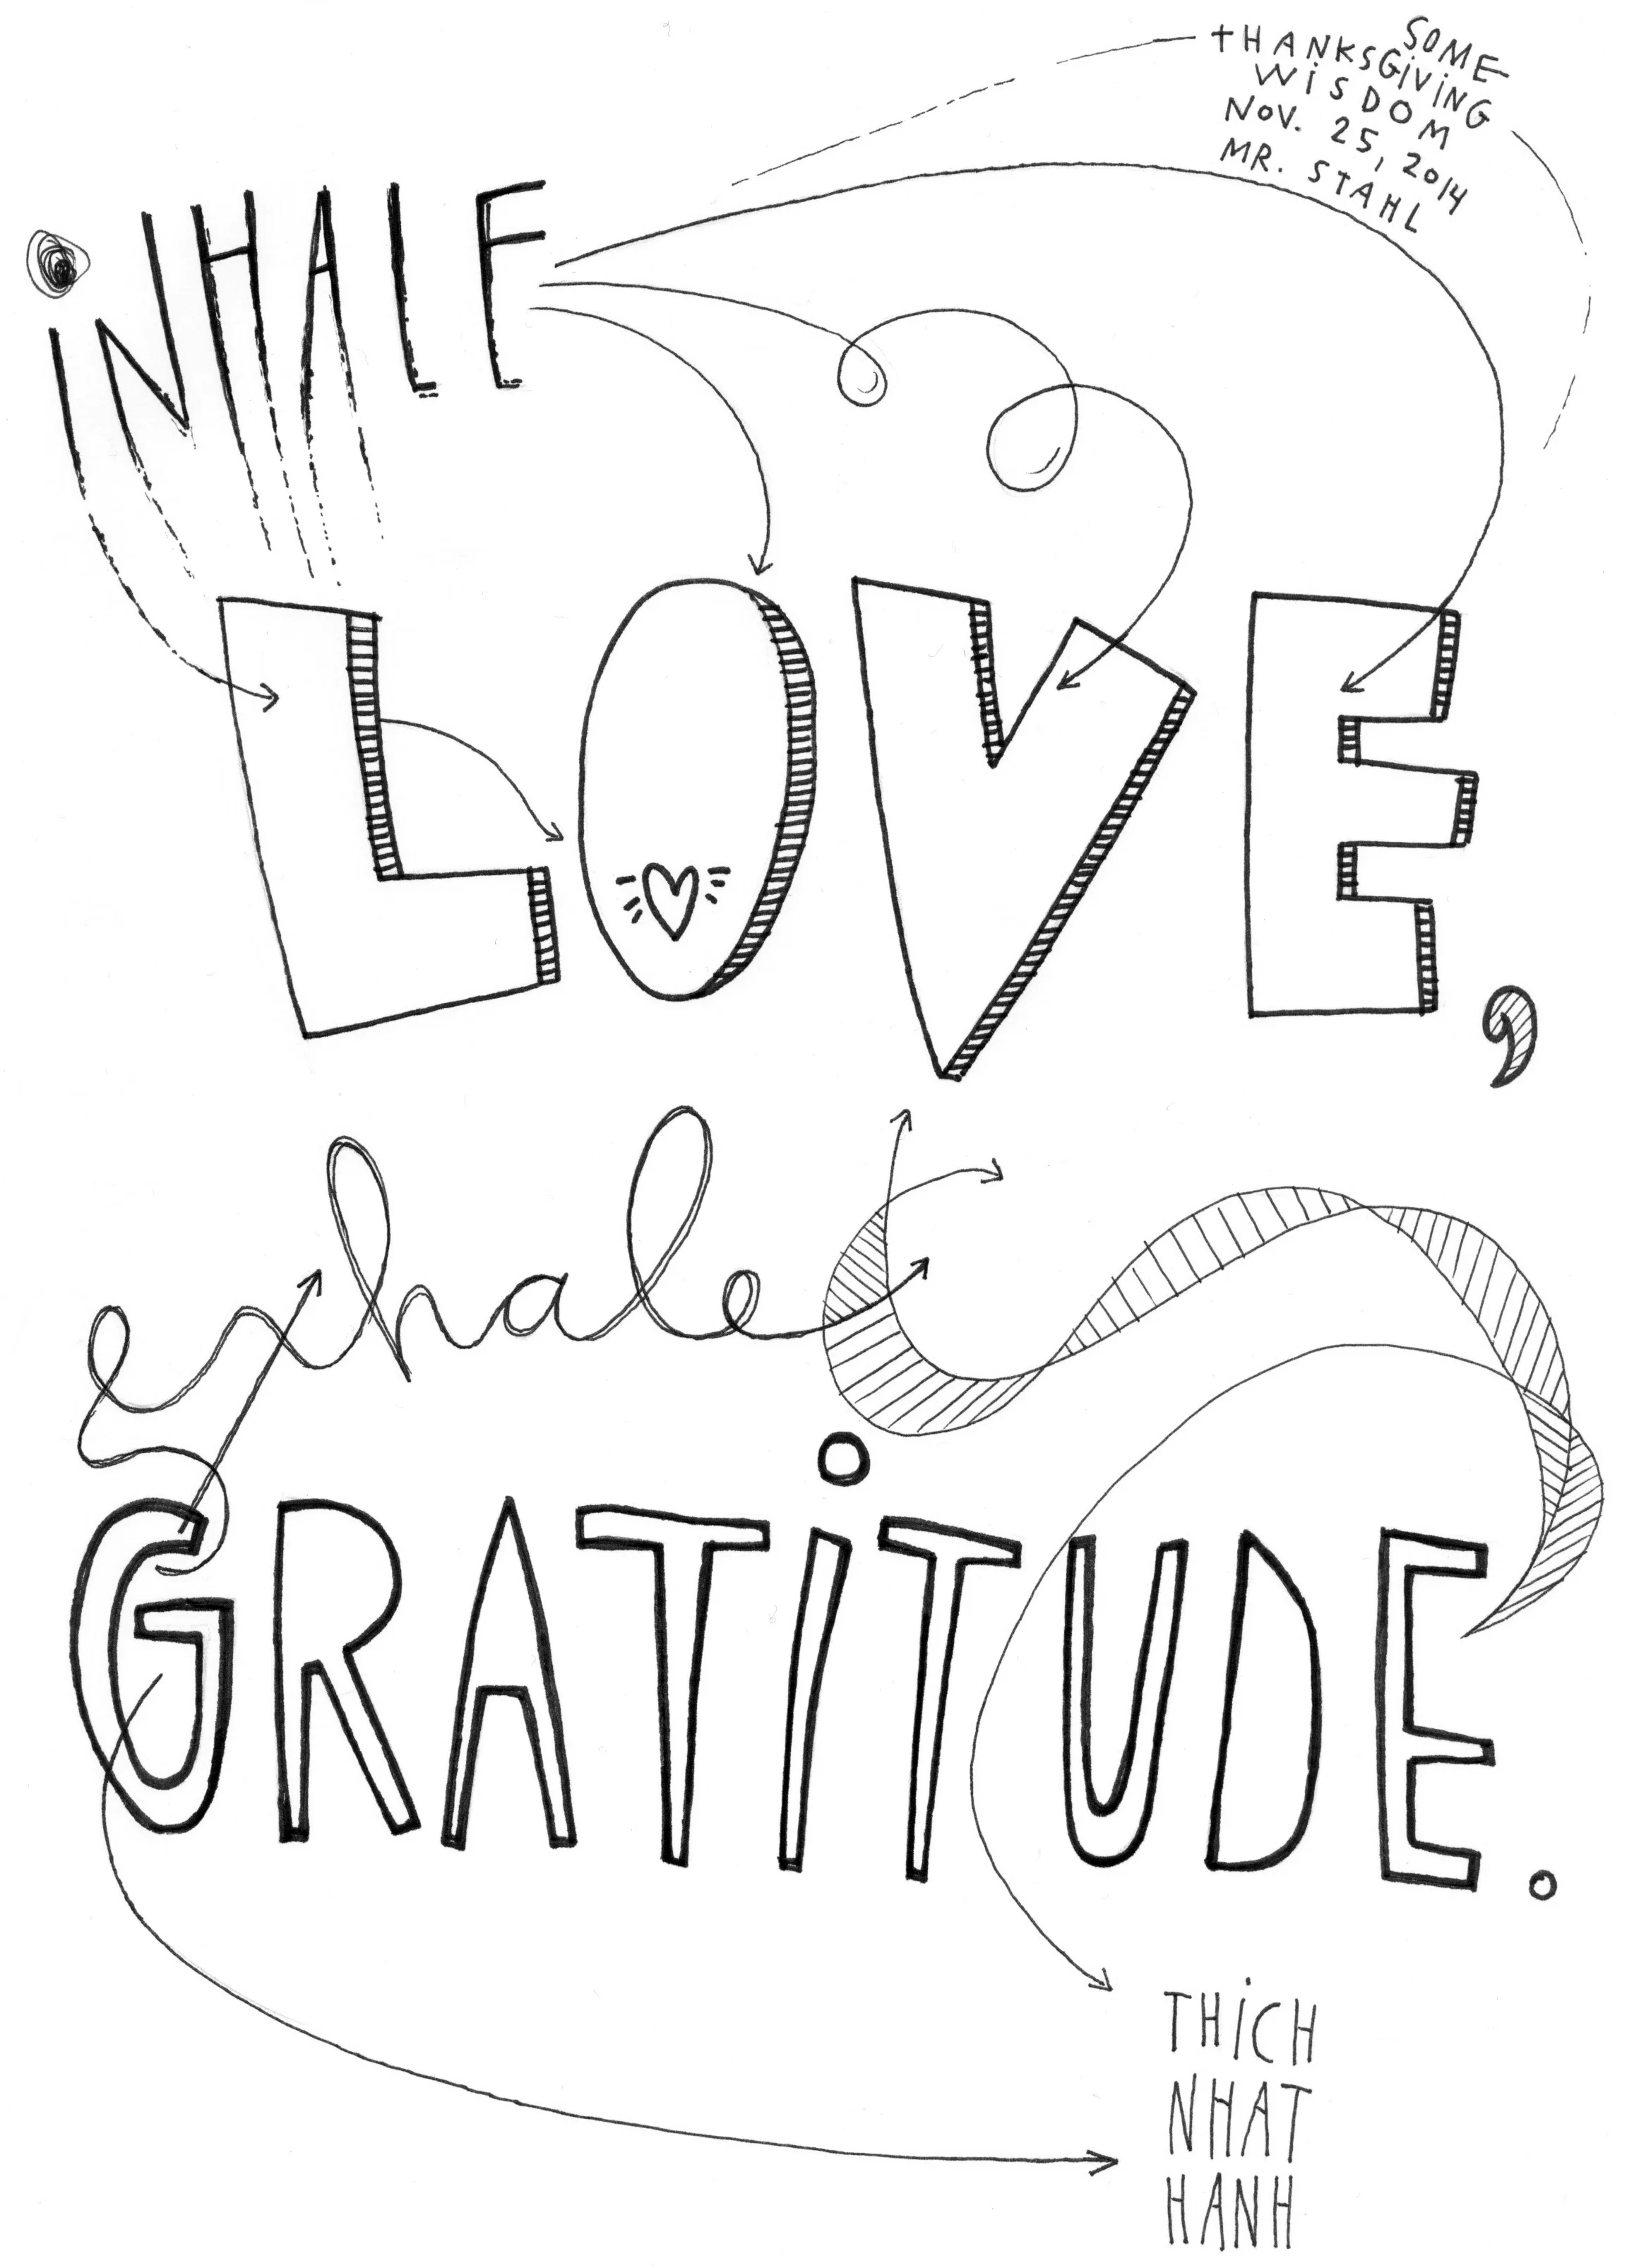 SOME
THANKSGiViNG
WiSDOM
NOV. 25, 2014
MR. STAHL
iNHALE
LOVE,
exhale
GRATiTUDE.
THiCH
NHAT
HANH